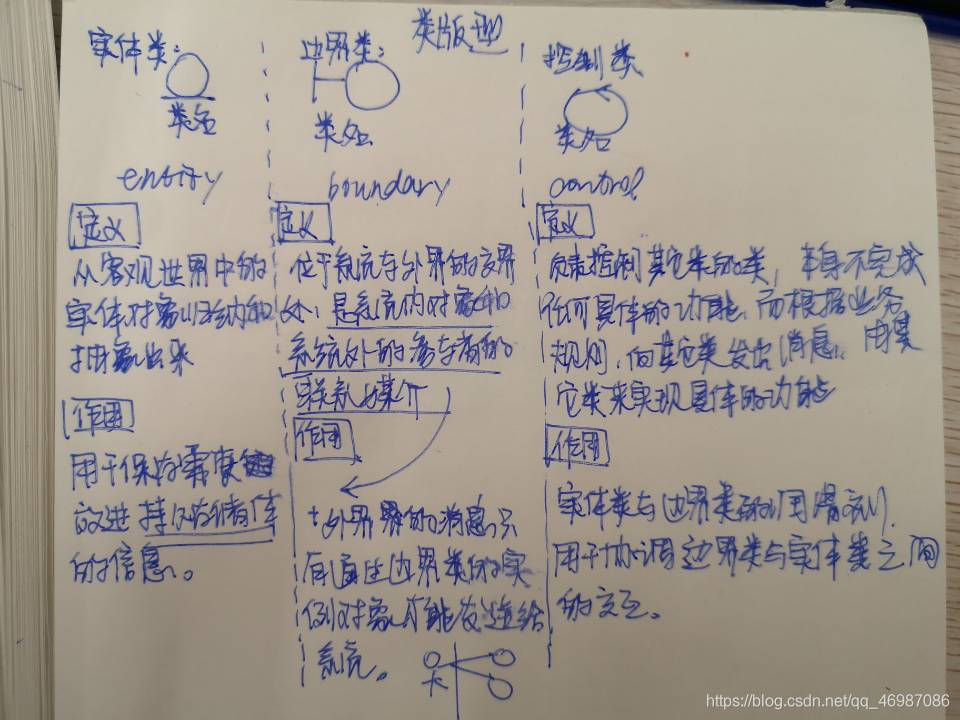 类版型
实体类:
类名
entity
定义
从客观世界中的
实体对象归纳和
抽象出来
作用
用于保存需要
放进持久存储体
的信息。
边界类:
类名
boundary
定义
位于系统与外界的交界
处,是系统内对象和
系统外的参与者的
联系媒介
作用
外界的消息只
有通过边界类的实
例对象才能发送给
系统。
控制类
类名
control
定义
负责控制其它类的类,本身不完成
任何具体的功能,而根据业务
规则,向其它类发出消息,由其
它类来实现具体的功能
作用
实体类与边界类的润滑剂,
用于协调边界类与实体类之间
的交互。
https://blog.csdn.net/qq_46987086